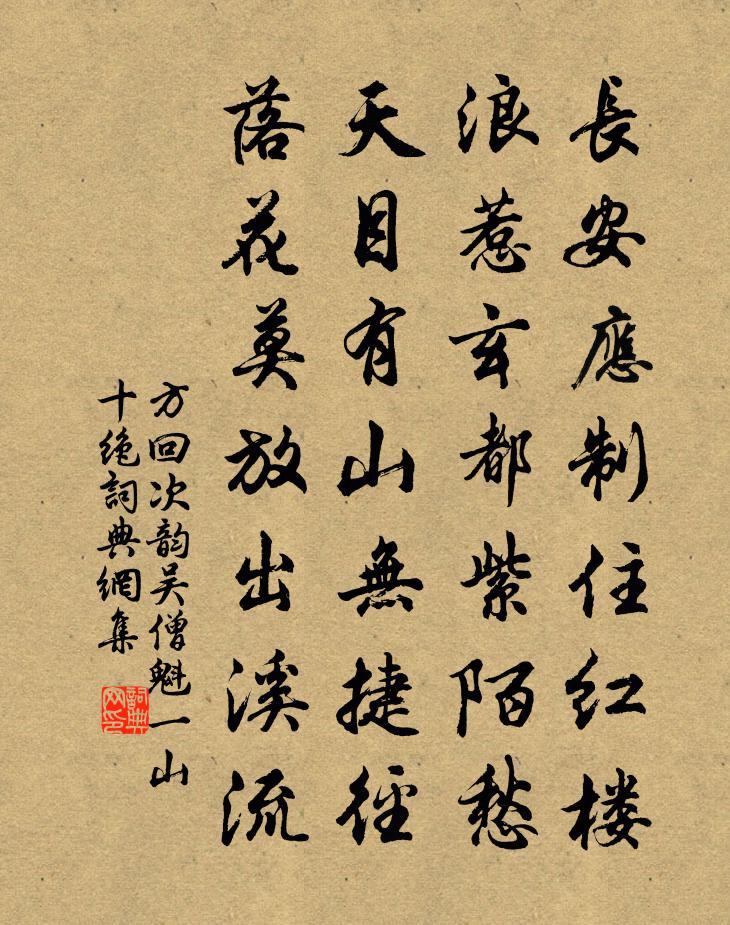 長安應制住红楼
浪惹玄都紫陌愁
天目有山無捷徑
落花莫放出溪流
方回次韵吴僧魁一山
十绝詞典網集
詞典网印